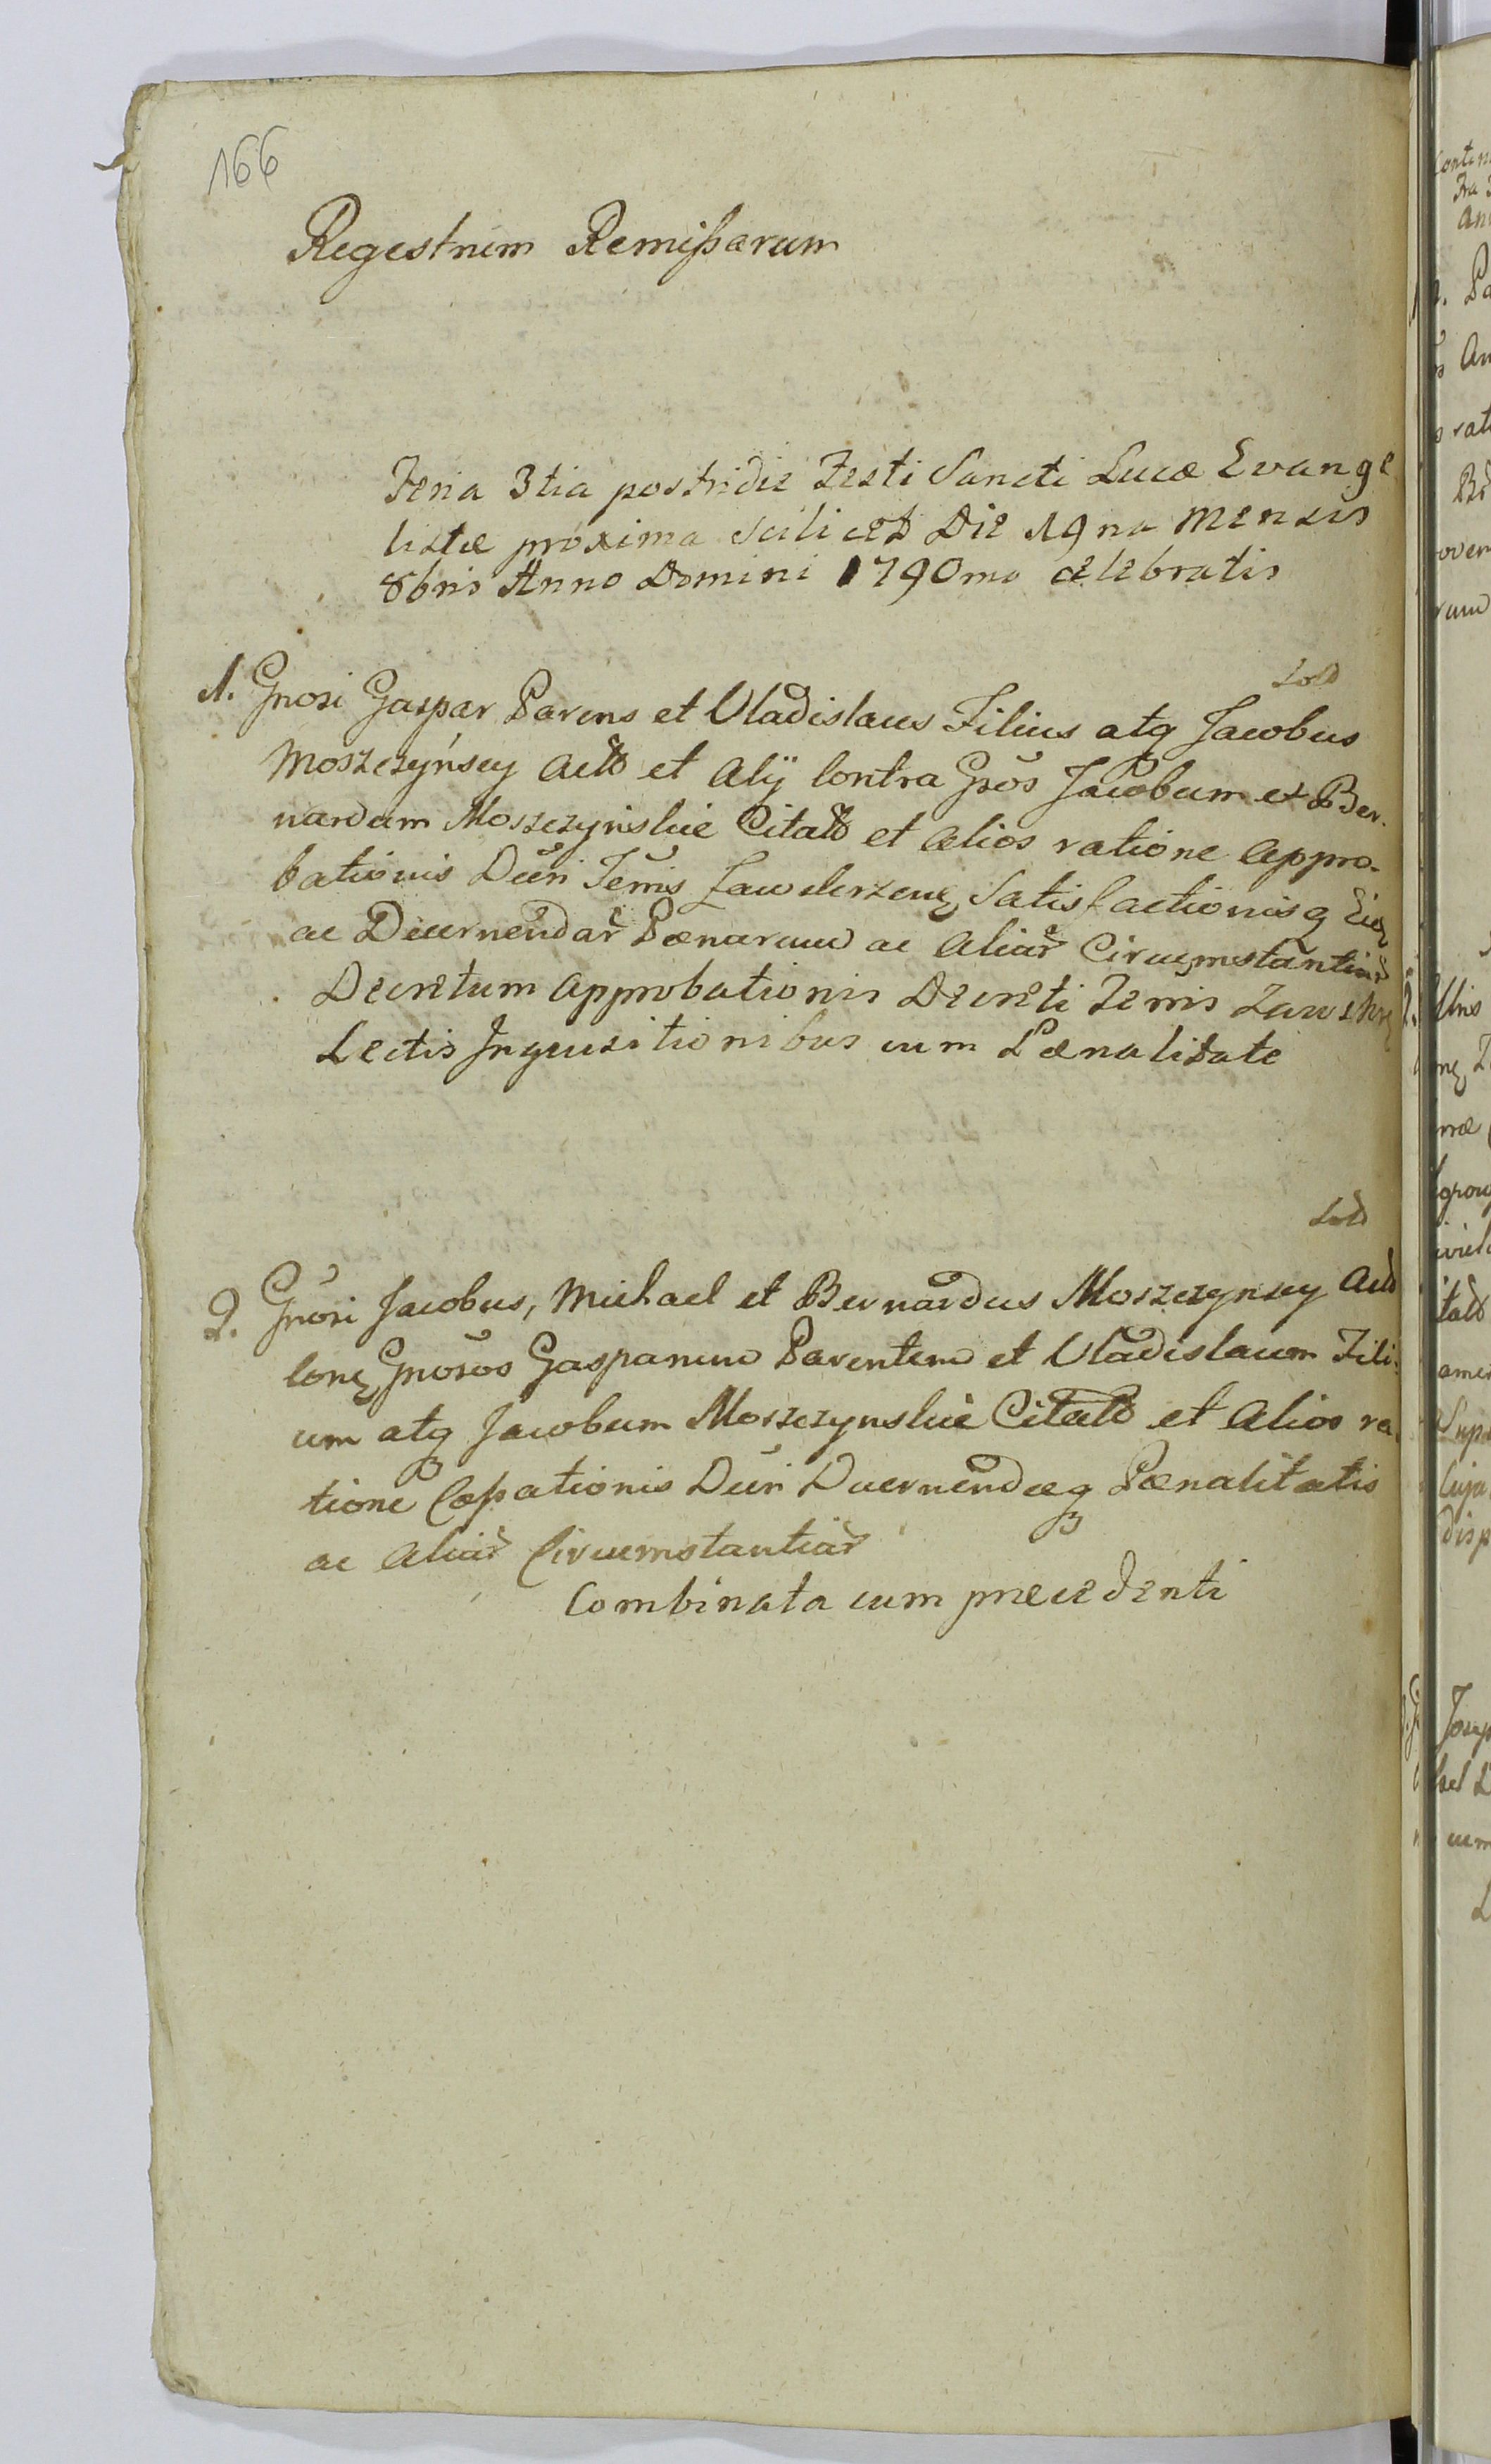 166
Regestrum Remissarum
Feria 3tia postridie Festi Sancti Lucæ Evange
listæ proxima scilicet Die 19na Mensis
8bris Anno Domini 1790mo celebratis
Sold
1. Gnosi Gaspar Parens et Vladislaus Filius atq Jacobus
Moszczyńscy Actt et Alÿ Contra Gnos Jacobum et Ber-
nardum Moszczynskie Citatt et Alios ratione Appro-
bationis Dcri Terris Zawskrzen, Satisfactionisq Ei
ac Decernendar̃ Pænarum ac Aliar̃ Circumstantiar̃
Decretum Approbationis Decreti Terris Zawskrz
Lectis Inquisitionibus cum Pænalitate
Sold
2. Gnosi Jacobus, Michael et Bernardus Moszczynscy Actt
Con Gnosos Gasparum Parentem et Vladislaum Fili-
um atq Jacobum Moszczynskie Citatt et Alios ra-
tione Cassationis Dcri Decernendæq Pænalitatis
ac Aliar̃ Circumstantiar̃
Combinata cum præcedenti